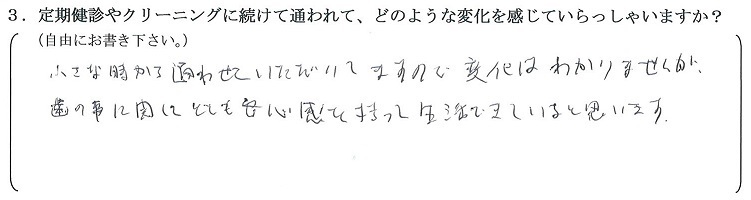 3．定期健診やクリーニングに続けて通われて、どのような変化を感じていらっしゃいますか？
（自由にお書き下さい。）
小さな時から通わせていただいてますので変化はわかりませんが、
歯の事に関してとても安心感を持って生活できていると思います。